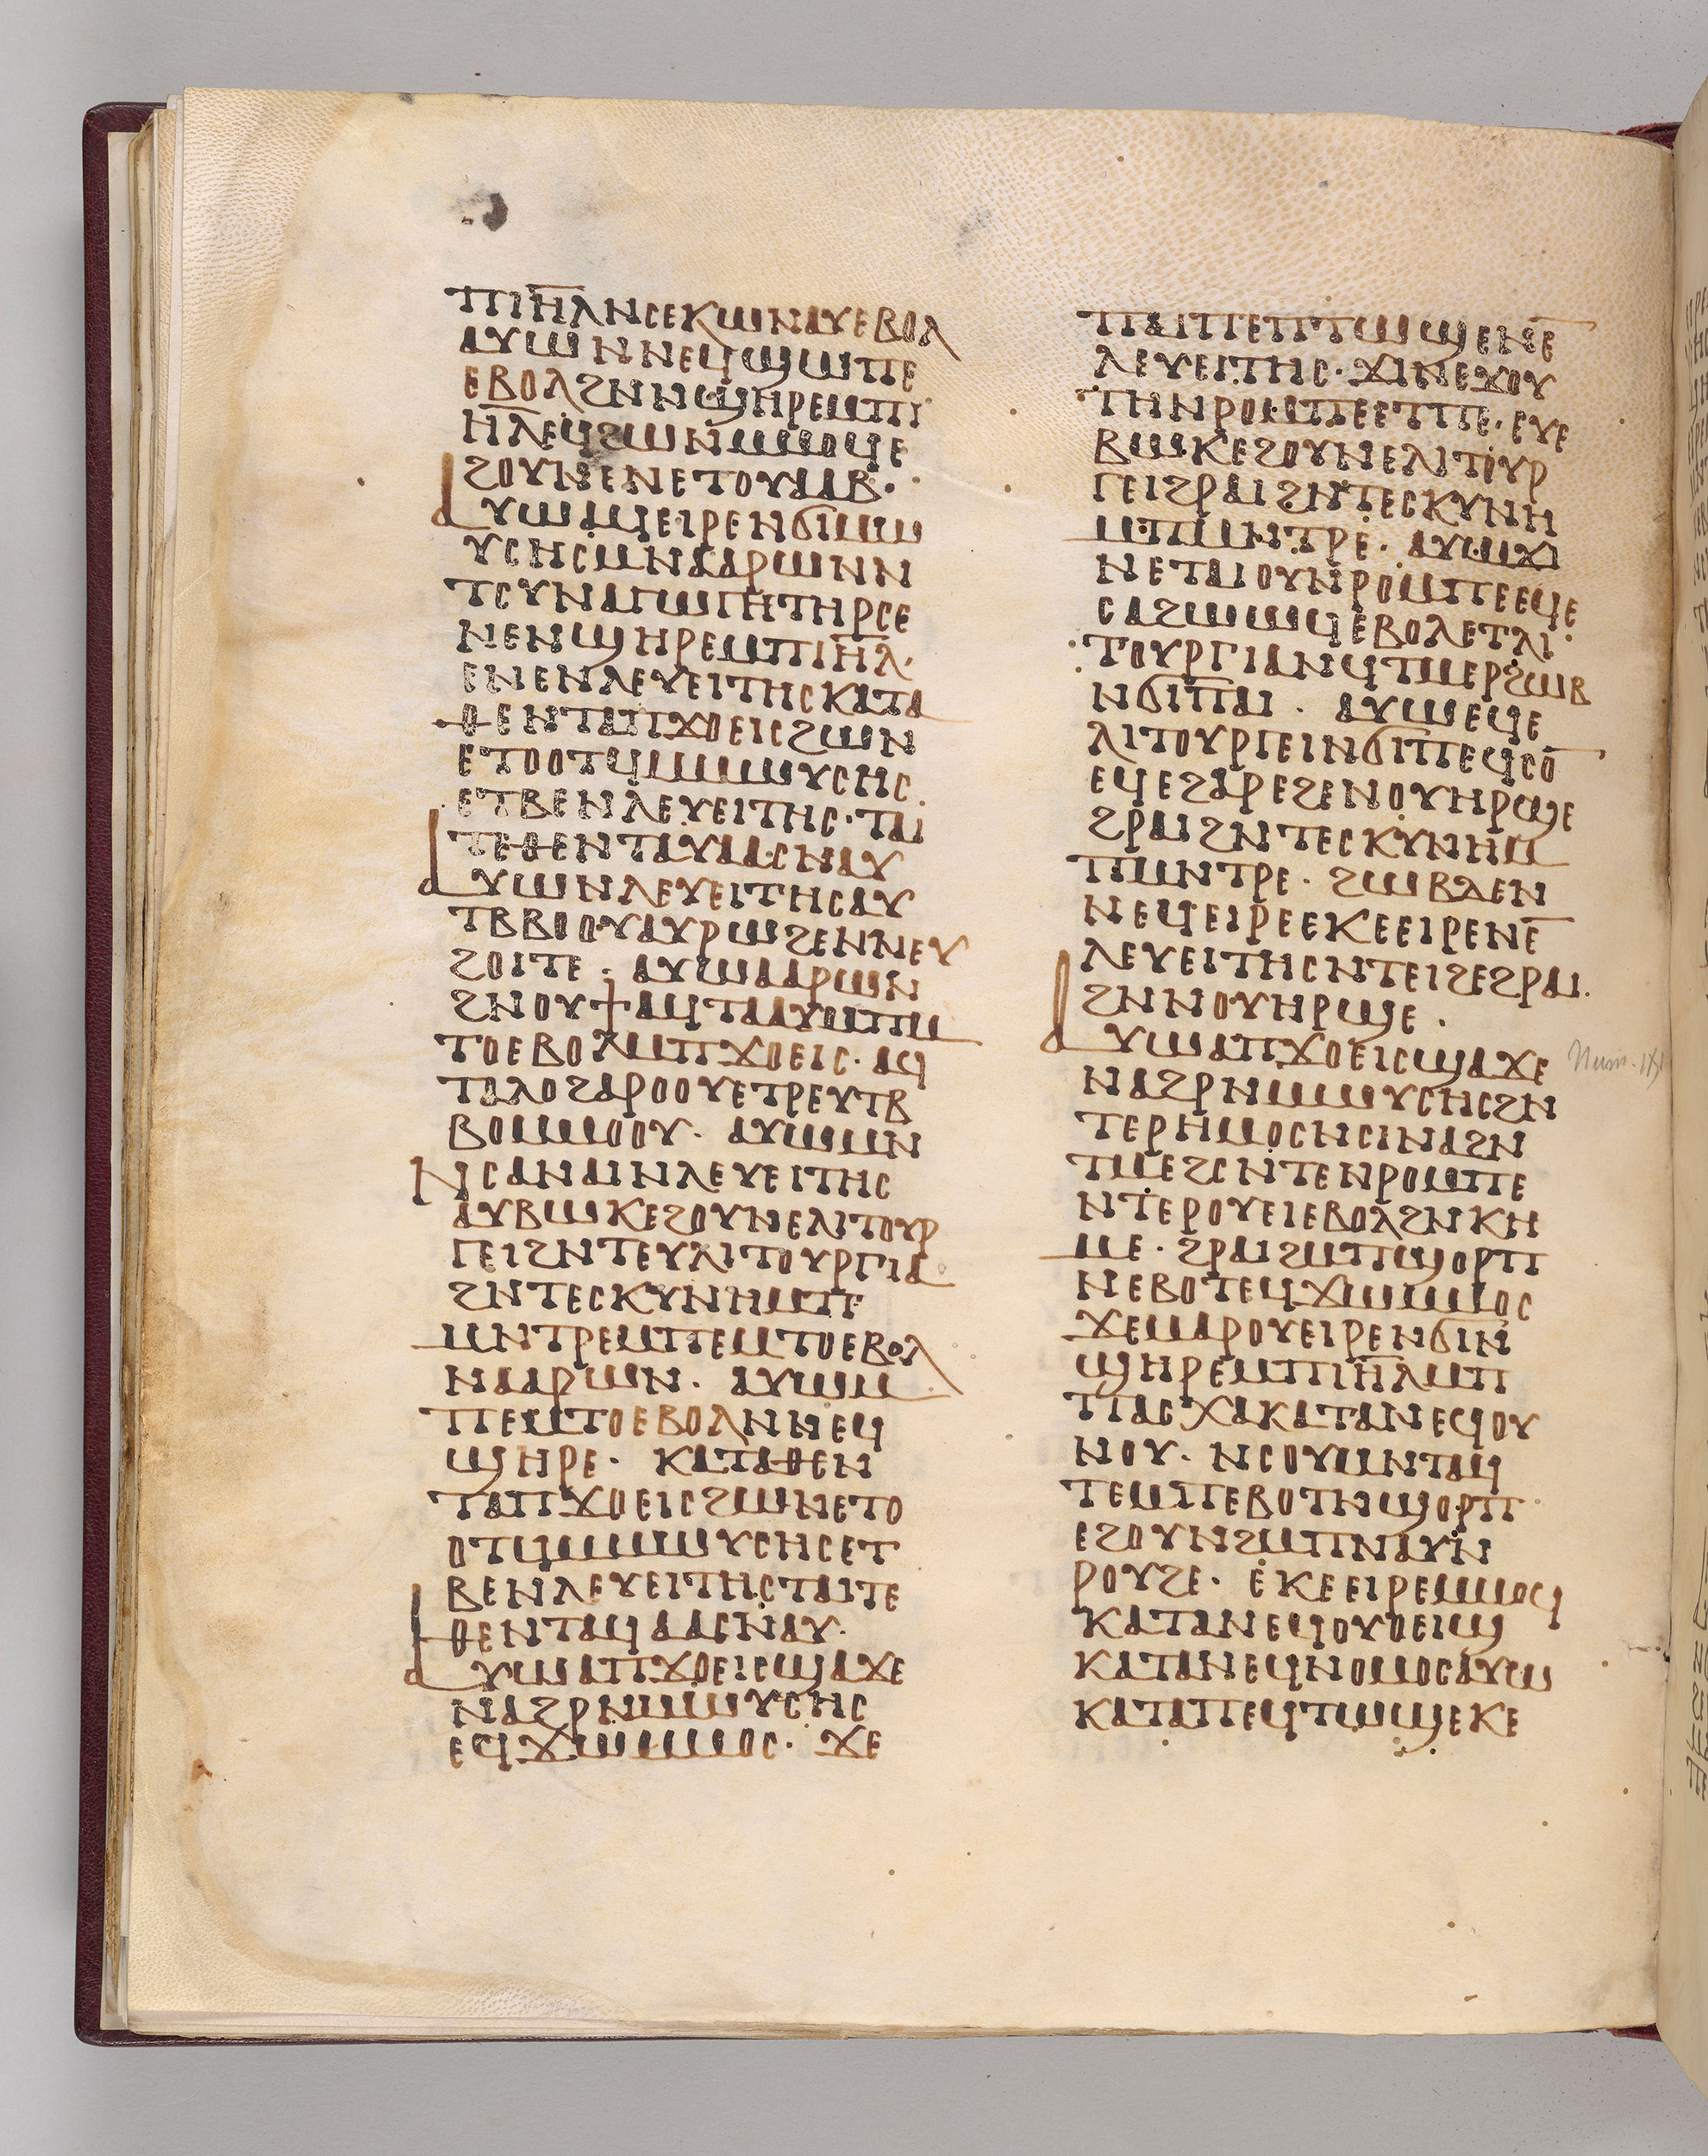 ⲡⲓⲏ̅ⲗ̅ ⲛⲥⲉⲕⲱ ⲛⲁⲩ ⲉⲃⲟⲗ
ⲁⲩⲱ ⲛⲛⲉϥϣⲱⲡⲉ
ⲉⲃⲟⲗ ϩⲛ ⲛϣⲏⲣⲉ ⲙⲡⲓ
ⲏ̅ⲗ̅ ⲉϥϩⲱⲛ ⲙⲙⲟϥ ⲉ
ϩⲟⲩⲛ ⲉⲛⲉⲧⲟⲩⲁⲁⲃ·
ⲁⲩⲱ ⲁϥⲉⲓⲣⲉ ⲛϭⲓ ⲙⲱ
ⲩⲥⲏⲥ ⲙⲛ ⲁⲁⲣⲱⲛ ⲛ
ⲧⲥⲩⲛⲁⲅⲱⲅⲏ ⲧⲏⲣⲥ ⲉ
ⲛⲉⲛϣⲏⲣⲉ ⲙⲡⲓⲏ̅ⲗ̅·
ⲉⲛⲉⲛⲗⲉⲩⲉⲓⲧⲏⲥ ⲕⲁⲧⲁ
ⲑⲉ ⲛⲧⲁⲡϫⲟⲉⲓⲥ ϩⲱⲛ
ⲉⲧⲟⲟⲧϥ ⲙⲙⲱⲩⲥⲏⲥ
ⲉⲧⲃⲉ ⲛⲗⲉⲩⲉⲓⲧⲏⲥ· ⲧⲁⲓ
ⲧⲉ ⲑⲉ ⲛⲧⲁⲩⲁⲁⲥ ⲛⲁⲩ
ⲁⲩⲱ ⲛⲗⲉⲩⲉⲓⲧⲏⲥ ⲁⲩ
ⲧⲃⲃⲟⲟⲩ ⲁⲩⲣⲱϩⲉ ⲛⲛⲉⲩ
ϩⲟⲓⲧⲉ· ⲁⲩⲱ ⲁⲁⲣⲱⲛ
ϩⲛ ⲟⲩϯ ⲁϥⲧⲁⲁⲩ ⲙⲡⲙ
ⲧⲟ ⲉⲃⲟⲗ ⲙⲡϫⲟⲉⲓⲥ· ⲁϥ
ⲧⲁⲗⲟ ϩⲁⲣⲟⲟⲩ ⲉⲧⲣⲉⲩⲧⲃ
ⲃⲟ ⲙⲙⲟⲟⲩ· ⲁⲩⲱ ⲙⲛ
ⲛⲥⲁ ⲛⲁⲓ ⲛⲗⲉⲩⲉⲓⲧⲏⲥ
ⲁⲩⲃⲱⲕ ⲉϩⲟⲩⲛ ⲉⲗⲓⲧⲟⲩⲣ
ⲅⲉⲓ ϩⲛ ⲧⲉⲩⲗⲓⲧⲟⲩⲣⲅⲓⲁ
ϩⲛ ⲧⲉⲥⲕⲩⲛⲏ ⲙⲡ
ⲙⲛⲧⲣⲉ ⲙⲡⲉⲙⲧⲟ ⲉⲃⲟⲗ
ⲛⲁⲁⲣⲱⲛ· ⲁⲩⲱ ⲙ
ⲡⲉⲙⲧⲟ ⲉⲃⲟⲗ ⲛⲛⲉϥ
ϣⲏⲣⲉ· ⲕⲁⲧⲁ ⲑⲉ ⲛ
ⲧⲁⲡϫⲟⲉⲓⲥ ϩⲱⲛ ⲉⲧⲟ
ⲟⲧϥ ⲙⲙⲱⲩⲥⲏⲥ ⲉⲧ
ⲃⲉ ⲛⲗⲉⲩⲉⲓⲧⲏⲥ ⲧⲁⲓ ⲧⲉ
ⲑⲉ ⲛⲧⲁϥⲁⲁⲥ ⲛⲁⲩ·
ⲁⲩⲱ ⲁⲡϫⲟⲉⲓⲥ ϣⲁϫⲉ
ⲛⲁϩⲣⲛ ⲙⲱⲩⲥⲏⲥ
ⲉϥϫⲱ ⲙⲙⲟⲥ· ϫⲉ
ⲡⲁⲓ ⲡⲉ ⲡⲧⲱϣ ⲉⲛⲉ̅
ⲗⲉⲩⲉⲓⲧⲏⲥ· ϫⲓⲛ ⲉϫⲟⲩ
ⲧⲏ ⲛⲣⲟⲙⲡⲉ ⲉⲧⲡⲉ· ⲉⲩⲉ
ⲃⲱⲕ ⲉϩⲟⲩⲛ ⲉⲗⲓⲧⲟⲩⲣ
ⲅⲉⲓ ϩⲣⲁⲓ ϩⲛ ⲧⲉⲥⲕⲩⲛⲏ
ⲙⲡⲙⲛⲧⲣⲉ· ⲁⲩⲱ ϫⲓ
ⲛ ⲉⲧⲁⲓⲟⲩ ⲛⲣⲟⲙⲡⲉ ⲉϥⲉ
ⲥⲁϩⲱⲱϥ ⲉⲃⲟⲗ ⲉⲧⲗⲓ
ⲧⲟⲩⲣⲅⲓⲁ ⲛϥⲧⲙⲉⲣϩⲱⲃ
ⲛϭⲓ ⲡⲁⲓ· ⲁⲩⲱ ⲉϥⲉ
ⲗⲓⲧⲟⲩⲣⲅⲉⲓ ⲛϭⲓ ⲡⲉϥⲥⲟ̅
ⲉϥⲉϩⲁⲣⲉϩ ⲉⲛⲟⲩⲏⲣϣⲉ
ϩⲣⲁⲓ ϩⲛ ⲧⲉⲥⲕⲩⲛⲏ ⲙ
ⲡⲙⲛⲧⲣⲉ· ϩⲱⲃ ⲇⲉ ⲛ
ⲛⲉϥⲉⲓⲣⲉ ⲉⲕⲉⲉⲓⲣⲉ ⲛⲉ̅
ⲗⲉⲩⲉⲓⲧⲏⲥ ⲛⲧⲉⲓϩⲉ ϩⲣⲁⲓ
ϩⲛ ⲛⲟⲩⲏⲣϣⲉ·
ⲁⲩⲱ ⲁⲡϫⲟⲉⲓⲥ ϣⲁϫⲉ
ⲛⲁϩⲣⲛ ⲙⲱⲩⲥⲏⲥ ϩⲛ
ⲧⲉⲣⲏⲙⲟⲥ ⲛⲥⲓⲛⲁ ϩⲛ
ⲧⲙⲉϩⲥⲛⲧⲉ ⲛⲣⲟⲙⲡⲉ
ⲛⲧⲉⲣⲟⲩⲉⲓ ⲉⲃⲟⲗ ϩⲛ ⲕⲏ
ⲙⲉ· ϩⲣⲁⲓ ϩⲙ ⲡϣⲟⲣⲡ
ⲛⲉⲃⲟⲧ ⲉϥϫⲱ ⲙⲙⲟⲥ
ϫⲉ ⲙⲁⲣⲟⲩⲉⲓⲣⲉ ⲛϭⲓ ⲛ
ϣⲏⲣⲉ ⲙⲡⲓⲏ̅ⲗ̅ ⲙⲡ
ⲡⲁⲥⲭⲁ ⲕⲁⲧⲁ ⲛⲉϥⲟⲩ
ⲛⲟⲩ· ⲛⲥⲟⲩⲙⲛⲧⲁϥ
ⲧⲉ ⲙⲡⲉⲃⲟⲧ ⲛϣⲟⲣⲡ
ⲉϩⲟⲩⲛ ϩⲙ ⲡⲛⲁⲩ ⲛ
ⲣⲟⲩϩⲉ· ⲉⲕⲉⲉⲓⲣⲉ ⲙⲙⲟϥ
ⲕⲁⲧⲁ ⲛⲉϥⲟⲩⲟⲉⲓϣ
ⲕⲁⲧⲁ ⲛⲉϥⲛⲟⲙⲟⲥ ⲁⲩⲱ
ⲕⲁⲧⲁ ⲡⲉϥⲧⲱϣ ⲉⲕⲉ